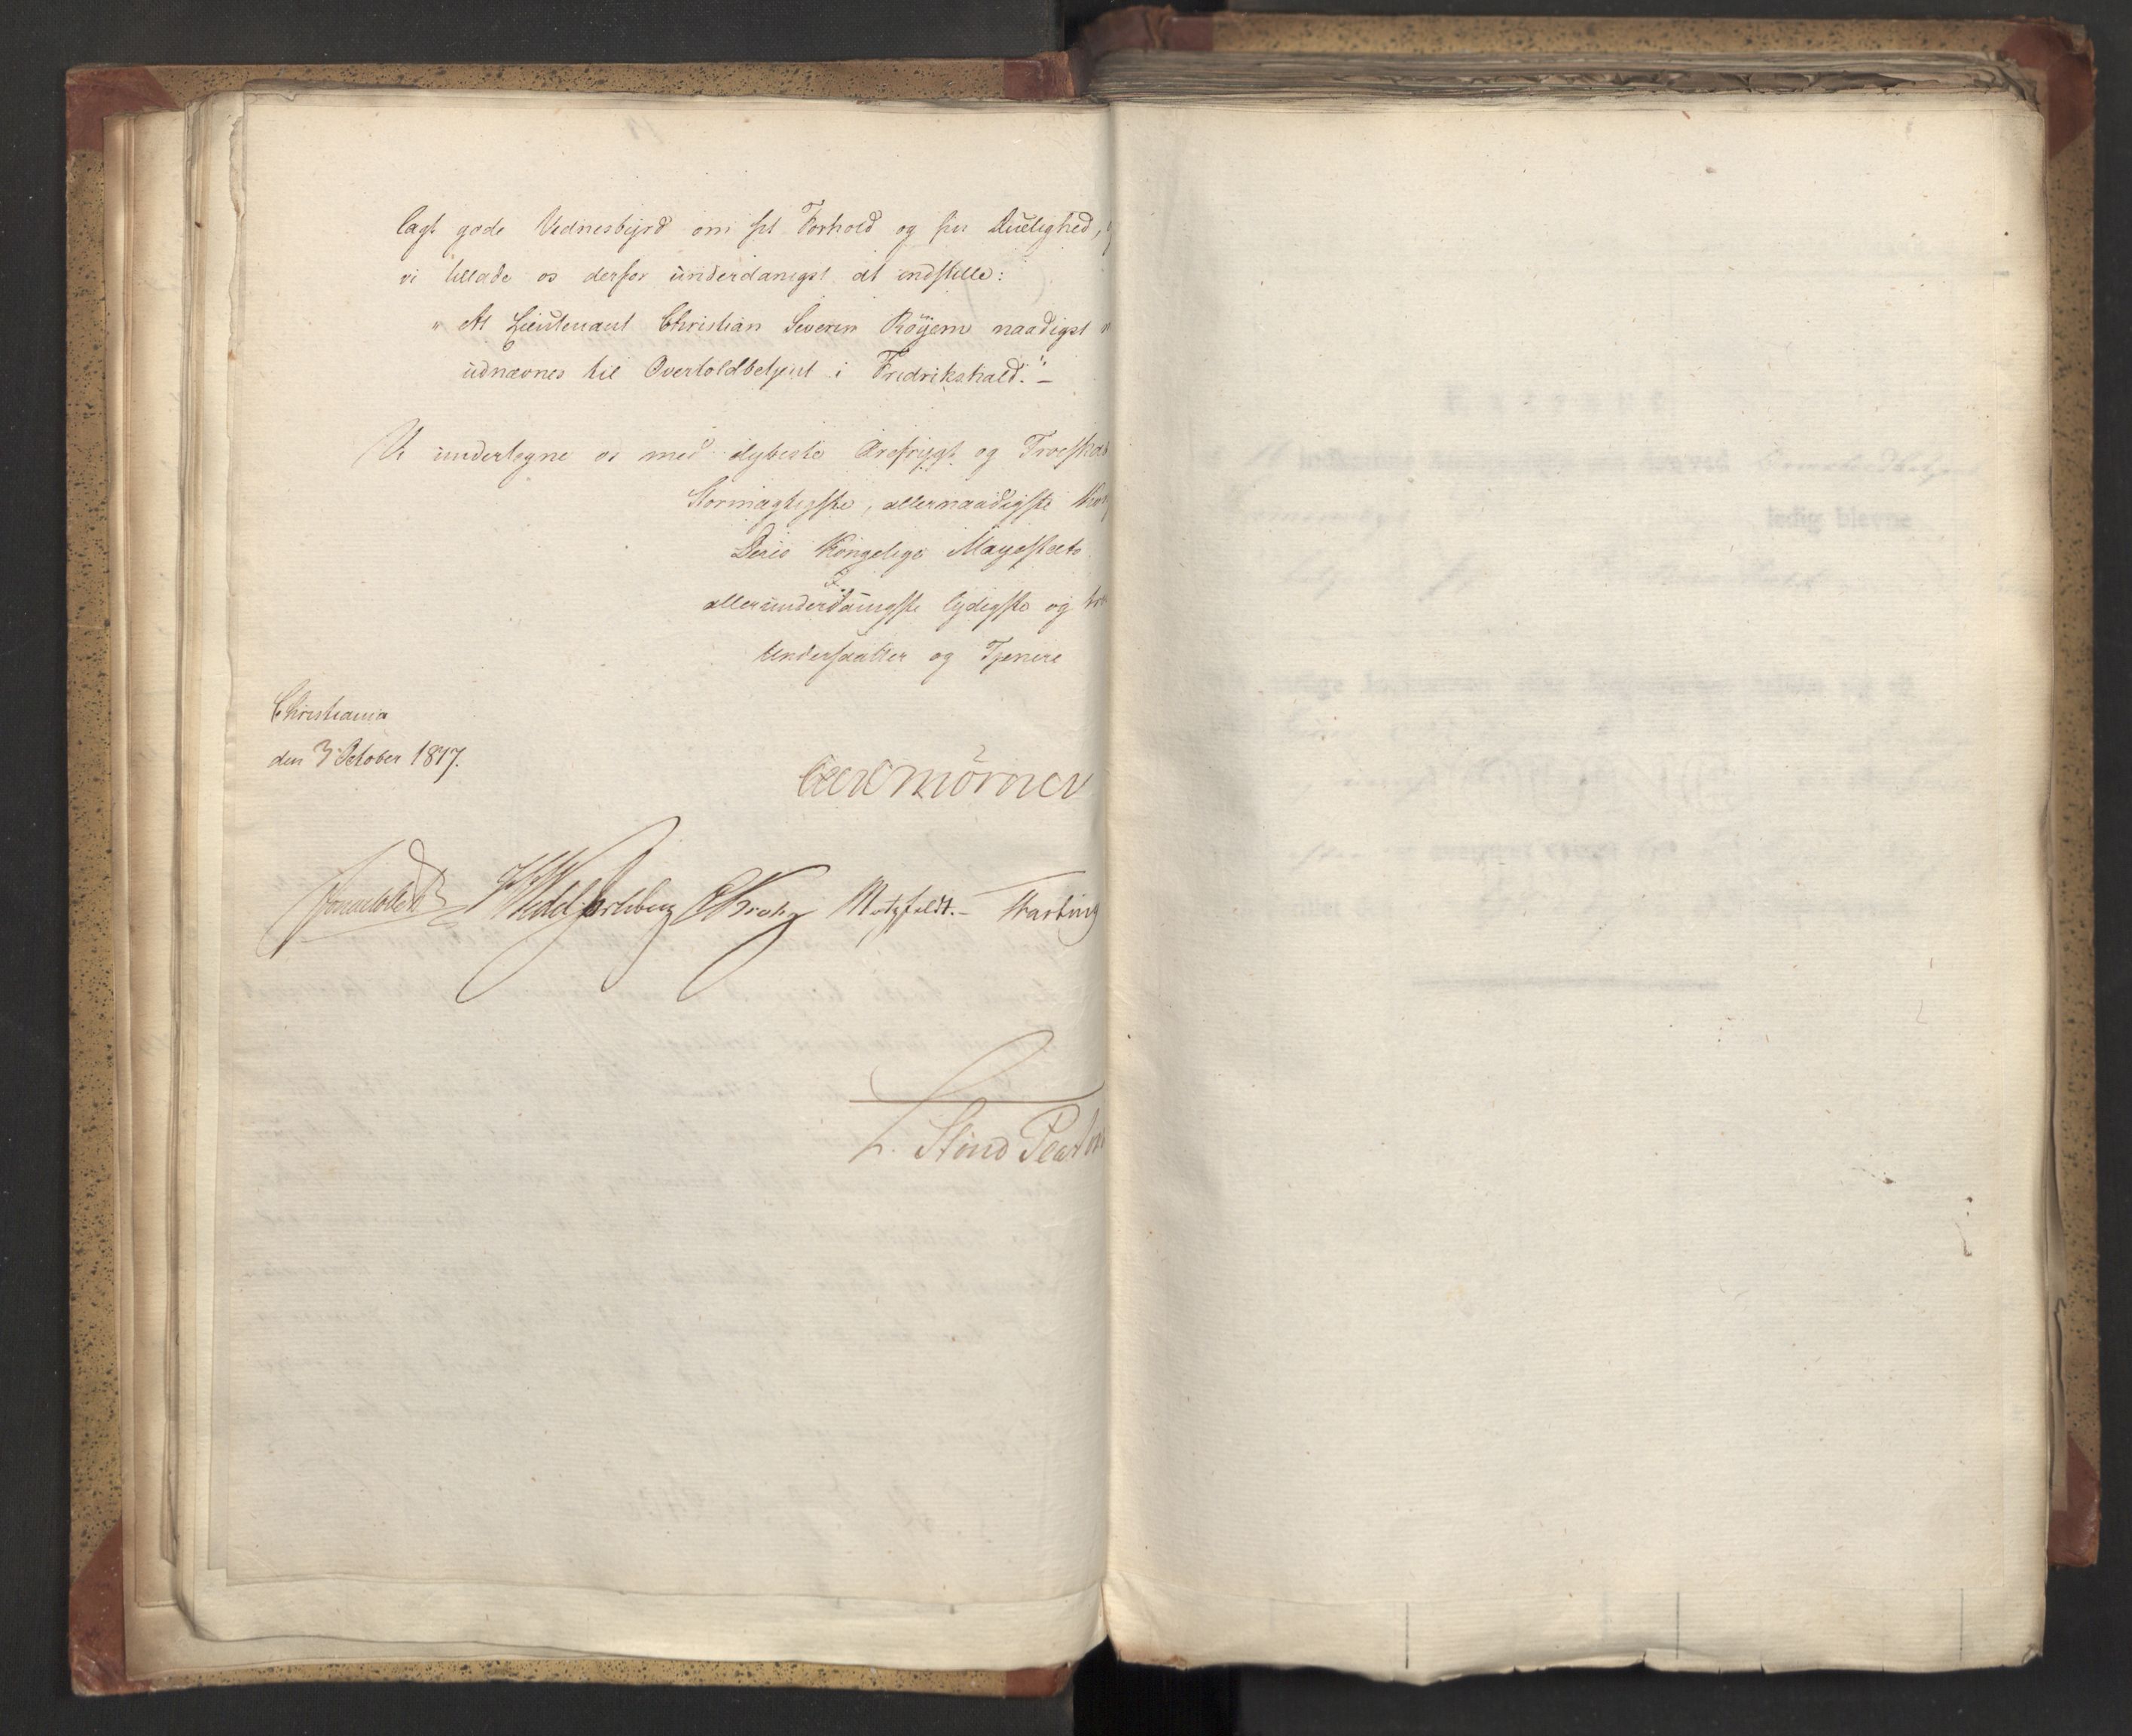 lagt gode Vidnesbyrd om sit Forhold og sin Duelighed,
vi tillade os derfor underdanigst at indstille:
"At Lieutenant Christian Severin Röÿem naadigst
udnævnes til Overtoldbetjent i Fredrikshald."-
Vi undertegne os med dybeste Ærefrygt og Troeskab
Stormægtigste, allernaadigste
Deres Kongelige Majestæts
allerunderdanigste lydigste og
Undersaatter og Tjenere
Christiania
den 3 October 1817.
Carl Mörner
Sommerhielm Wedel Jarlsberg C Krohg Motzfeldt.- Fasting
L. Stoud Platou
ledig blevne